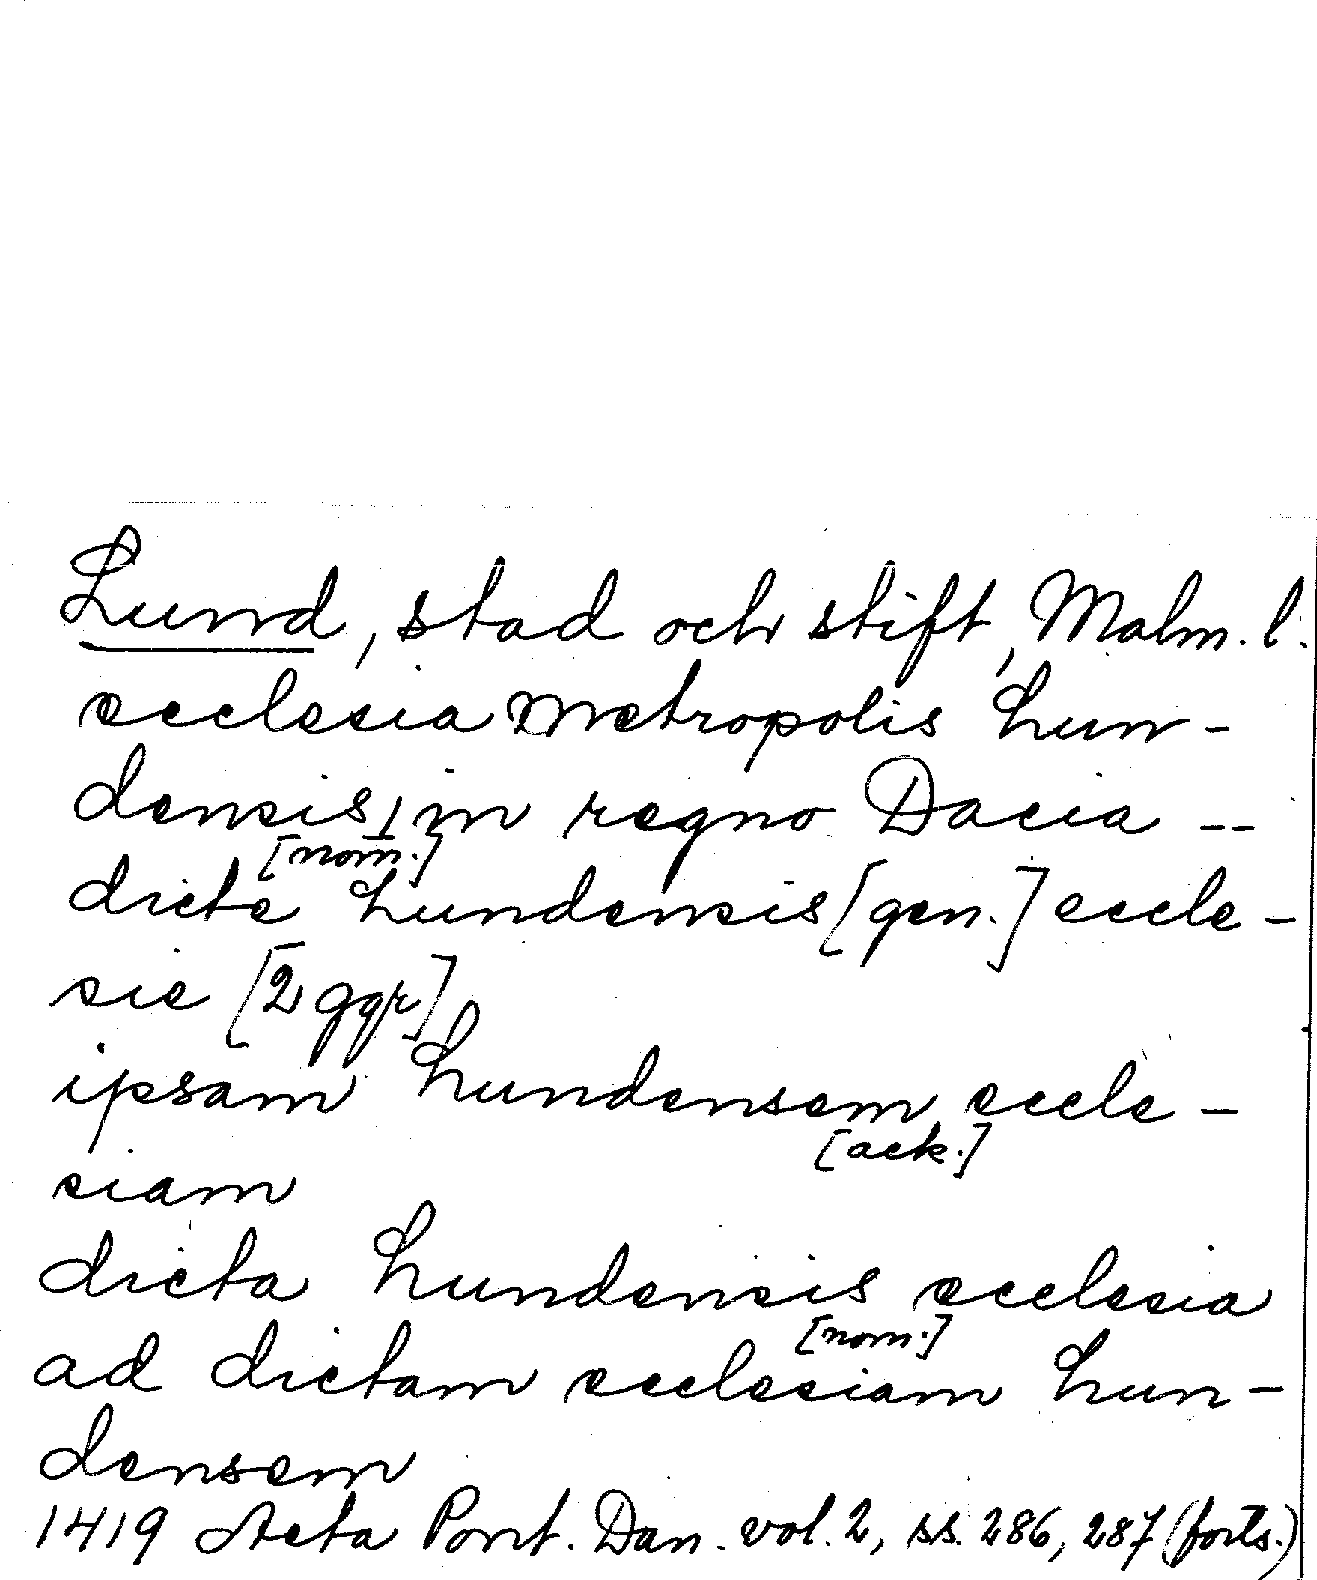 Lund, stad och stift, Malm. l.
ecclesia Metropolis Lun-
densis, in regno Dacia --
[nom.]
dicte Lundensis [gen.] eccle-
sie [2 ggr]
ipsam Lundensem eccle-
[ack.]
siam
dicta Lundensis ecclesia
[nom.]
ad dictam ecclesiam Lun-
densem
1419 Acta Pont. Dan. vol. 2, ss. 286, 287 (forts.)